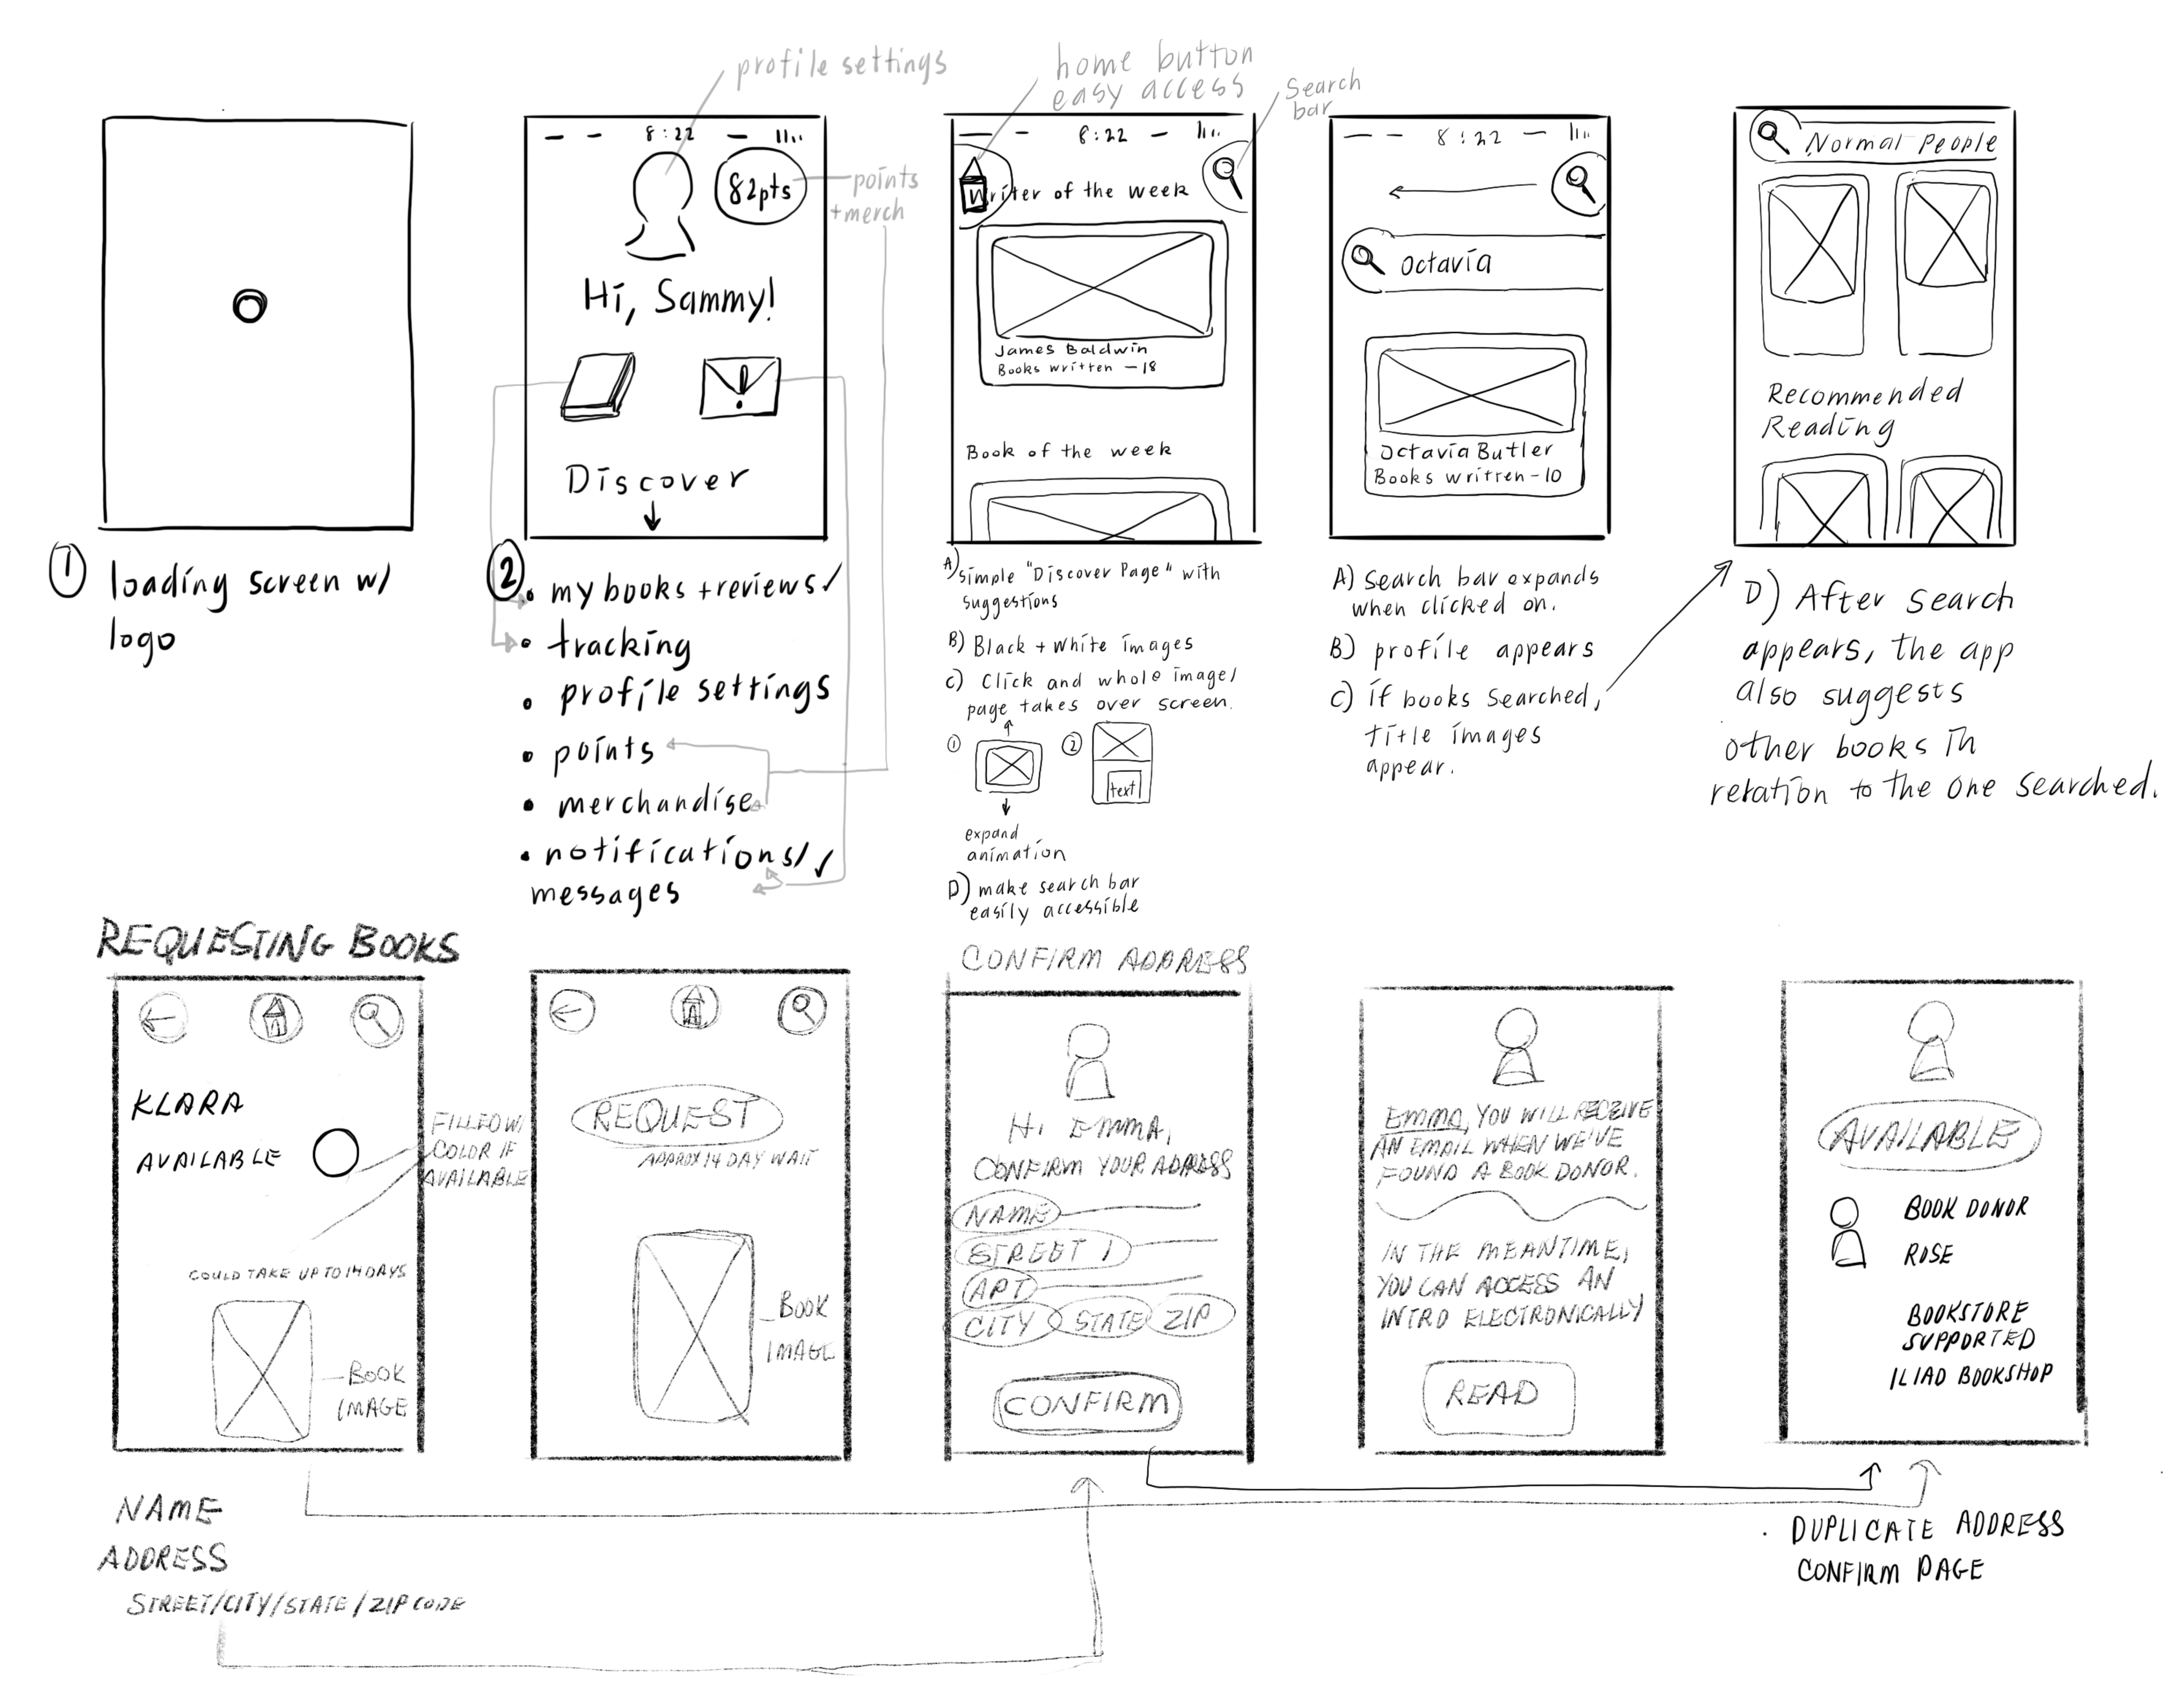 profile settings
home button
easy access
Search
bar
8:22
82pts
points
+merch
Hi, Sammy!
Discover
8:22
Writer of the week
James Baldwin
Books written - 18
Book of the week
8:22
Octavia
Octavia Butler
Books written - 10
Normal People
Recommended
Reading
① loading screen w/
logo
②
• my books + reviews ✓
• tracking
• profile settings
• points
• merchandise
• notifications/ ✓
messages
A) simple "Discover Page" with
suggestions
B) Black + white images
C) Click and whole image/
page takes over screen.
① ②
text
expand
animation
D) make search bar
easily accessible
A) Search bar expands
when clicked on.
B) profile appears
C) if books searched,
title images
appear.
D) After search
appears, the app
also suggests
other books in
relation to the one searched.
REQUESTING BOOKS
KLARA
AVAILABLE
FILLED W/
COLOR IF
AVAILABLE
COULD TAKE UP TO 14 DAYS
BOOK
IMAGE
REQUEST
APPROX 14 DAY WAIT
BOOK
IMAGE
CONFIRM ADDRESS
HI EMMA,
CONFIRM YOUR ADDRESS
NAME
STREET 1
APT
CITY STATE ZIP
CONFIRM
EMMA, YOU WILL RECEIVE
AN EMAIL WHEN WE'VE
FOUND A BOOK DONOR.
IN THE MEANTIME,
YOU CAN ACCESS AN
INTRO ELECTRONICALLY
READ
AVAILABLE
BOOK DONOR
ROSE
BOOKSTORE
SUPPORTED
ILIAD BOOKSHOP
NAME
ADDRESS
STREET/CITY/STATE/ZIP CODE
· DUPLICATE ADDRESS
CONFIRM PAGE